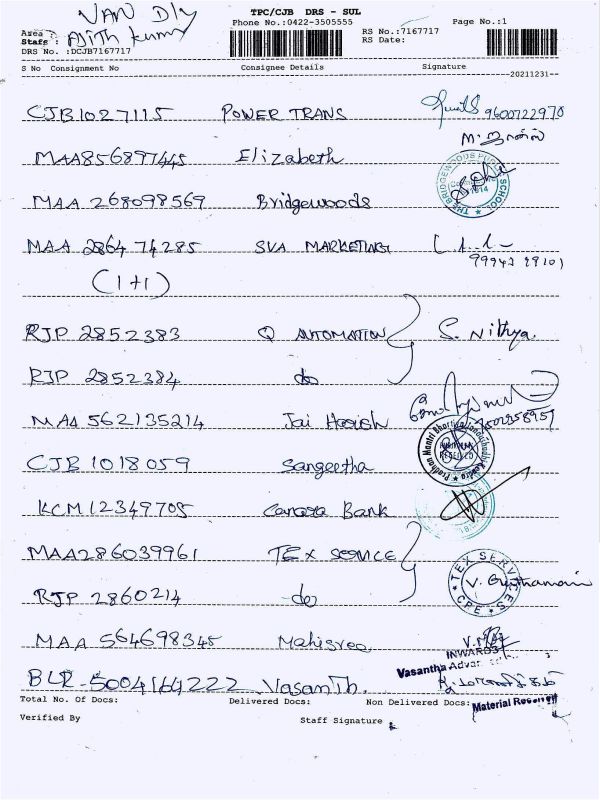 VAN Dly
TPC/CJB DRS - SUL
Phone No.:0422-3505555
RS No.:7167717
Page No.:1
Area :
Staff : Ajith Kumar
RS Date:
DRS No. :DCJB7167717
S No Consignment No Consignee Details Signature
20211231
CJB1027115 POWER TRANS 9600722970
MAA856897445 Elizabeth
MAA 268098569 Bridgewoods
THE BRIDGEWOODS PUBLIC SCHOOL
MAA 286474285 SVA MARKETING
(1+1)
RJP 2852383 Q AUTOMATION S. Nithya.
RJP 2852384 do
MAA 562135214 Jai Harish
CJB 1018059 Sangeetha
Pradhan Mantri Bhartiya Janaushadhi Kendra
KCM12349705 Canara Bank
MAA286039961 TEX SERVICE
TEX SERVICES
CPE
RJP 2860214 do
MAA 564698345 Mahisree
INWARDS
BLR-5004164222 Vasanth.
Vasantha
Total No. Of Docs: Delivered Docs: Non Delivered Docs:
Material Received
Verified By Staff Signature